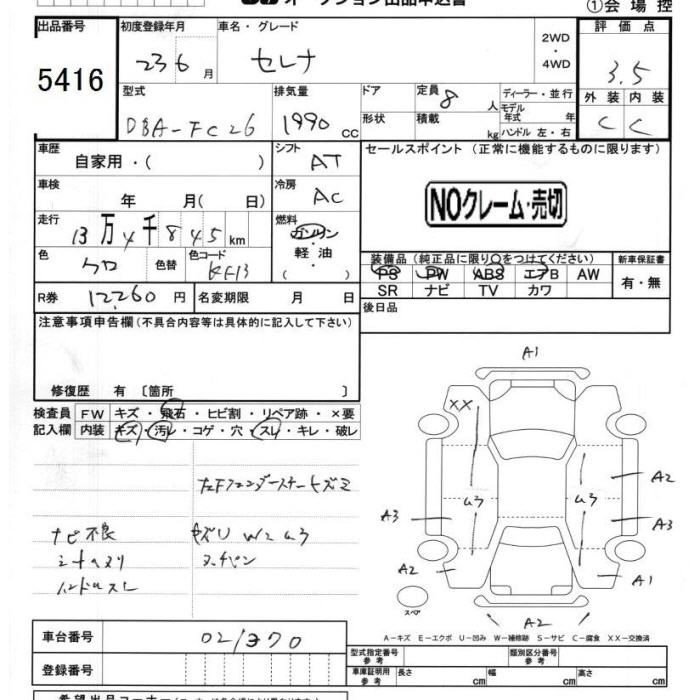 オークション出品申込書
①会 場 控
出品番号
5416
初度登録年月
23 6 月
車名・グレード
セレナ
2WD
・
4WD
評 価 点
3.5
外 装 内 装
C C
型式
DBA-FC26
排気量
1990 CC
ドア
形状
定員 8 人
積載 kg
ディーラー・並行
モデル
年式 年
ハンドル 左・右
車歴
自家用・( )
シフト
AT
セールスポイント (正常に機能するものに限ります)
車検
年 月( 日)
冷房
AC
NOクレーム・売切
走行
13万4千845km
燃料
ガソリン
軽 油
( )
色
クロ
色替
色コード
KH3
装備品 (純正品に限り○をつけてください)
新車保証書
PS PW ABS エアB AW
有・無
SR ナビ TV カワ
R券 12,260 円
名変期限 月 日
後日品
注意事項申告欄(不具合内容等は具体的に記入して下さい)
修復歴 有 〔箇所 〕
検査員
記入欄
FW キズ・飛石・ヒビ割・リペア跡・×要
内装 キズ・汚レ・コゲ・穴・スレ・キレ・破レ
ナビ不良
シートヘタリ
ハンドルスレ
左Fフェンダーステーキズミ
キズU W2 U3
ヌーチパン
A1
XX
U3
U3
A2
A3
A3
A2
A1
A2
スペア
A-キズ E-エクボ U-凹み W-補修跡 S-サビ C-腐食 XX-交換済
車台番号
021370
登録番号
型式指定番号
参 考
類別区分番号
参 考
車庫証明用
参 考
長さ cm
幅 cm
高さ cm